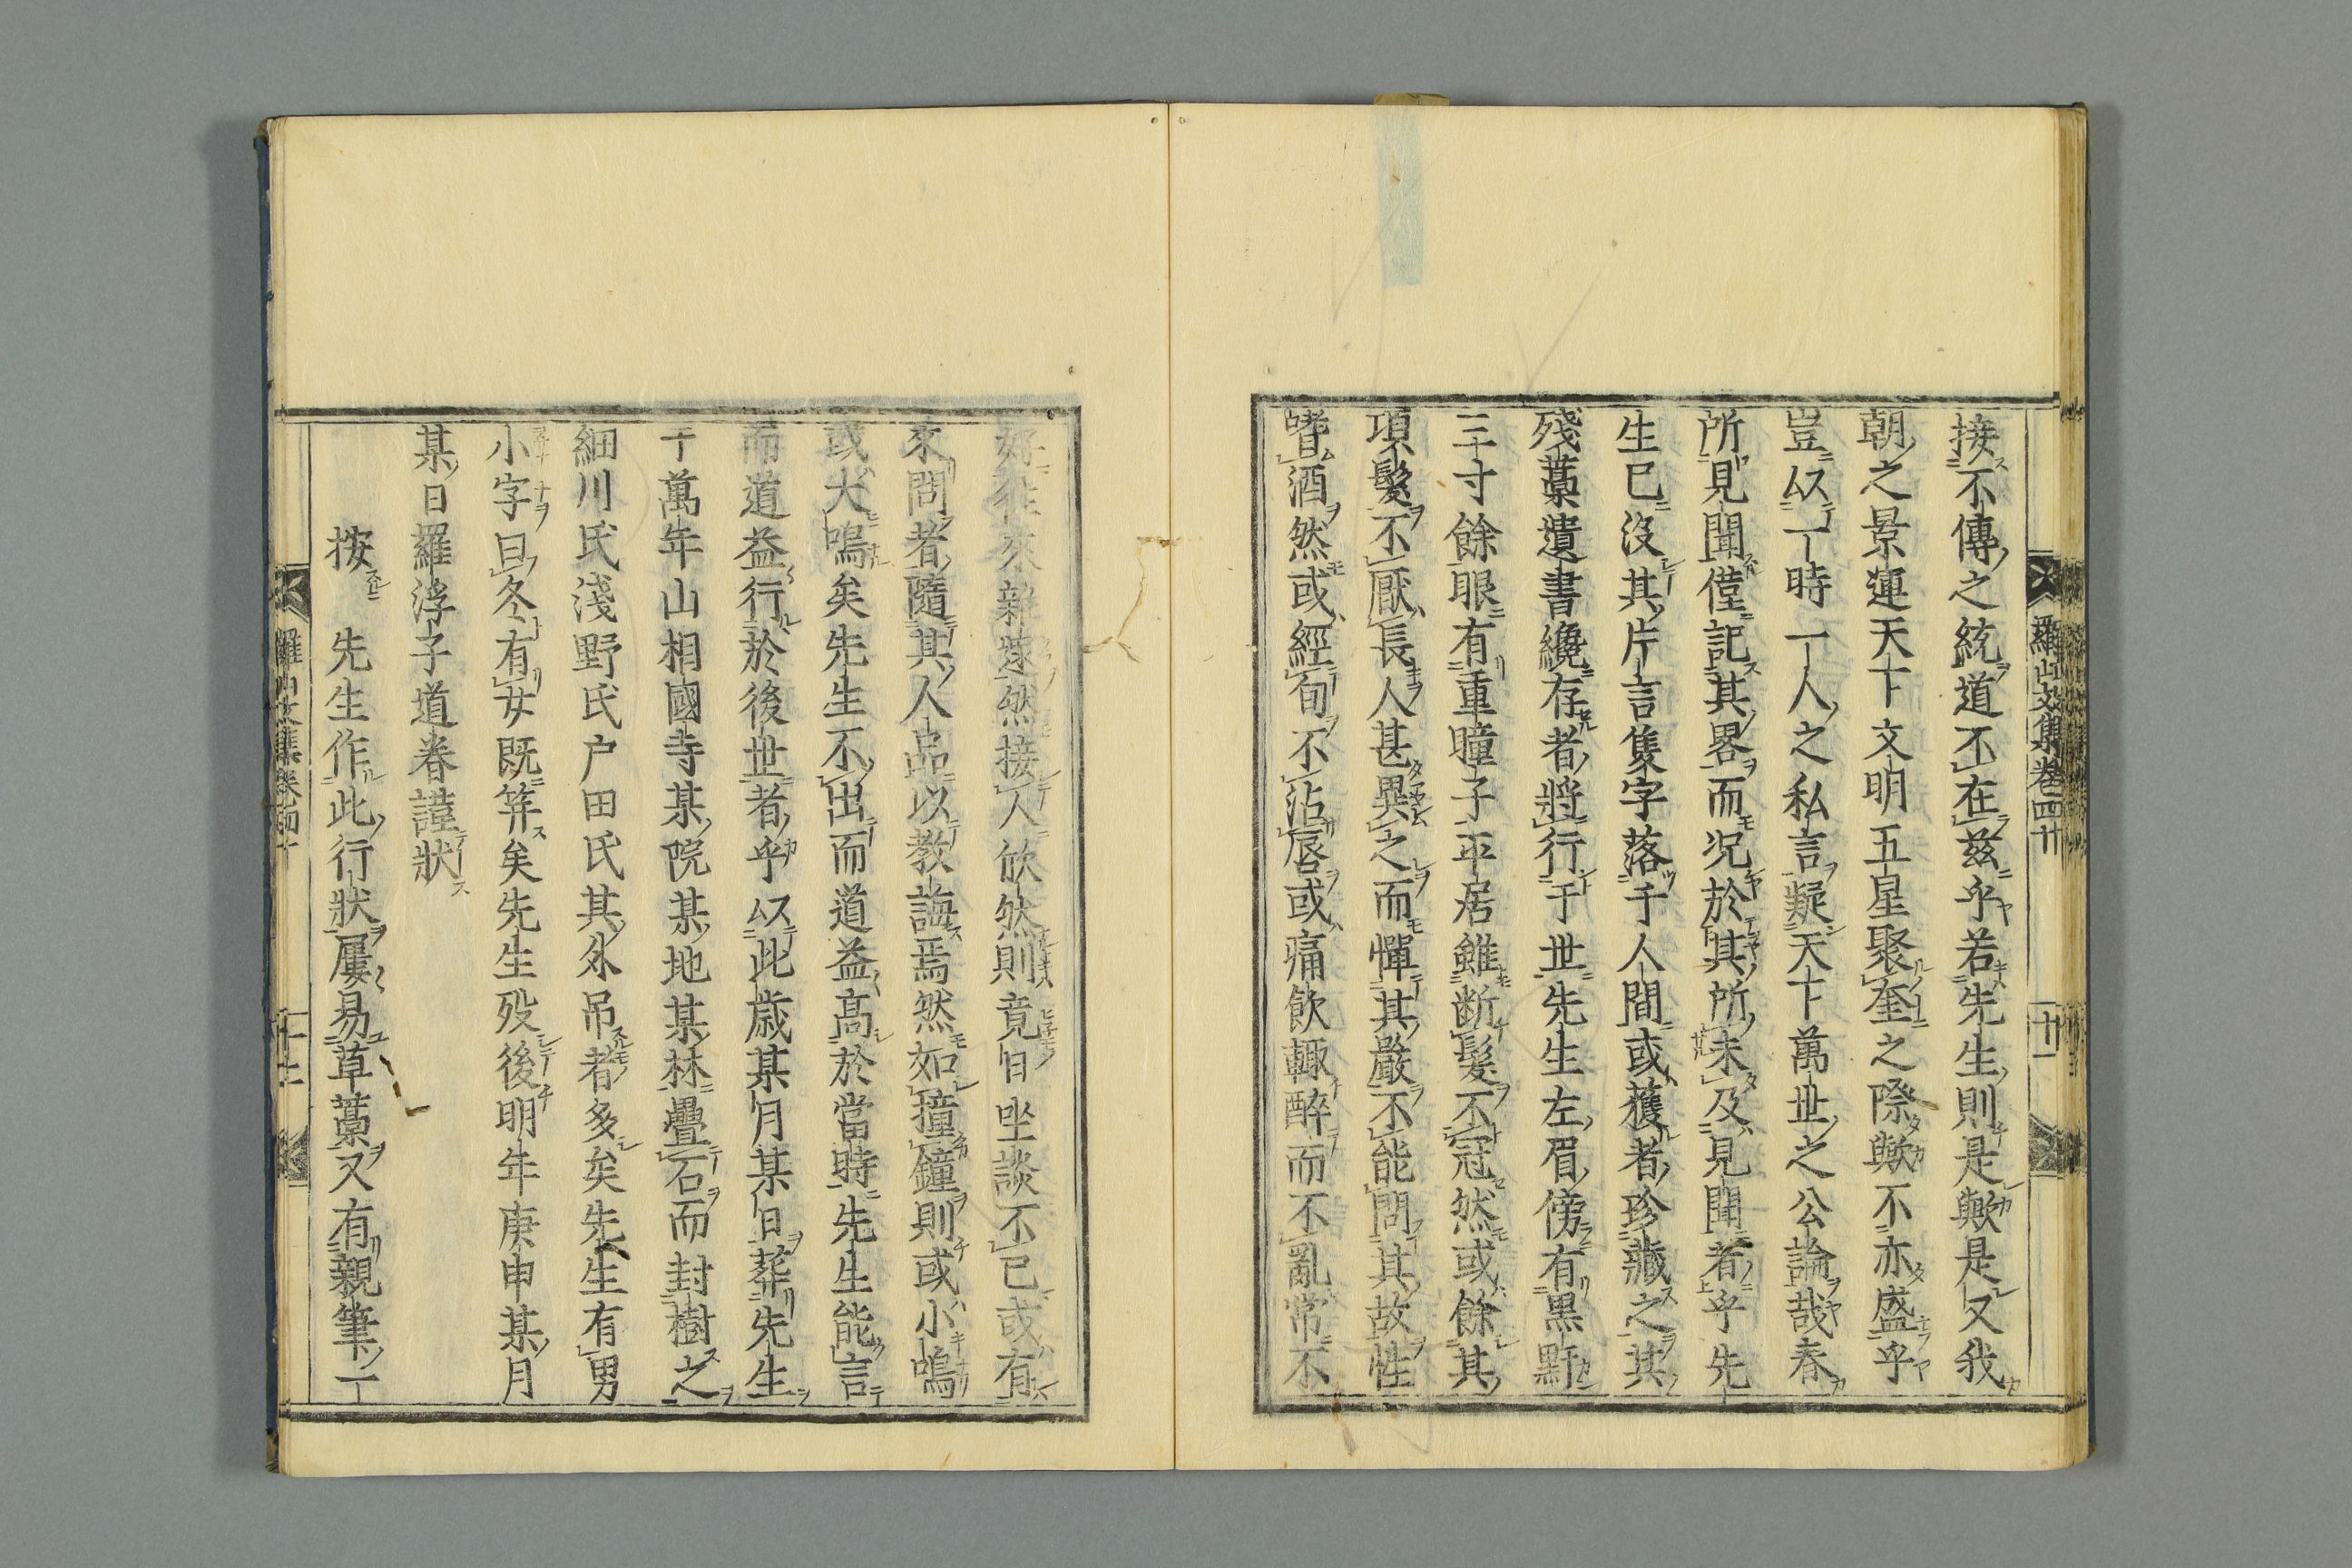 羅山文集卷四十
廿一
接不傳之統道不在茲乎若先生則是歟是又我
朝之景運天下文明五星聚奎之際歟不亦盛乎
豈以一時一人之私言疑天下萬世之公論哉春
所見聞僅記其畧而況於其所未及見聞者乎先
生已沒其片言隻字落于人間或獲者珍藏之其
殘藁遺書纔存者將行于世先生左眉傍有黒黚
三寸餘眼有重瞳子平居雖断髮不冠然或餘其
項髮不厭長人甚異之而憚其嚴不能問其故性
嗜酒然或經旬不沾唇或痛飲輙醉而不亂常不
好往來雜遝然接人欣然則竟日坐談不已或有
來問者隨其人品以教誨焉然如撞鐘則或小鳴
或大鳴矣先生不出而道益高於當時先生能言
而道益行於後世者乎以此歳某月某日葬先生
于萬年山相國寺某院某地某林疊石而封樹之
細川氏淺野氏户田氏其外吊者多矣先生有男
小字曰冬有女既笄矣先生殁後明年庚申某月
某日羅浮子道春謹狀
按先生作此行狀屢易草藁又有親筆一
羅山文集卷四十